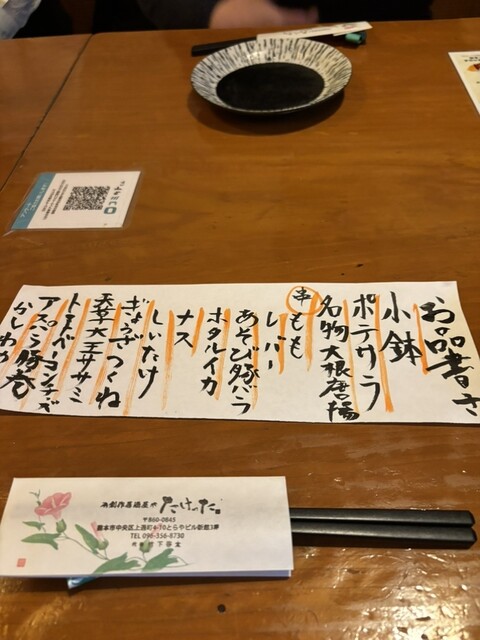 お品書き
小鉢
ポテサラ
名物大根唐揚
串 もも
レバー
あそび豚バラ
ホタルイカ
ナス
しいたけ
ぎょうざつくね
天草大王ササミ
トマトベーコンチーズ
アスパラ豚巻
かしわ
創作居酒屋
たけった
〒860-0845
熊本市中央区上通町4-10とらやビル新館3F
TEL 096-356-8730